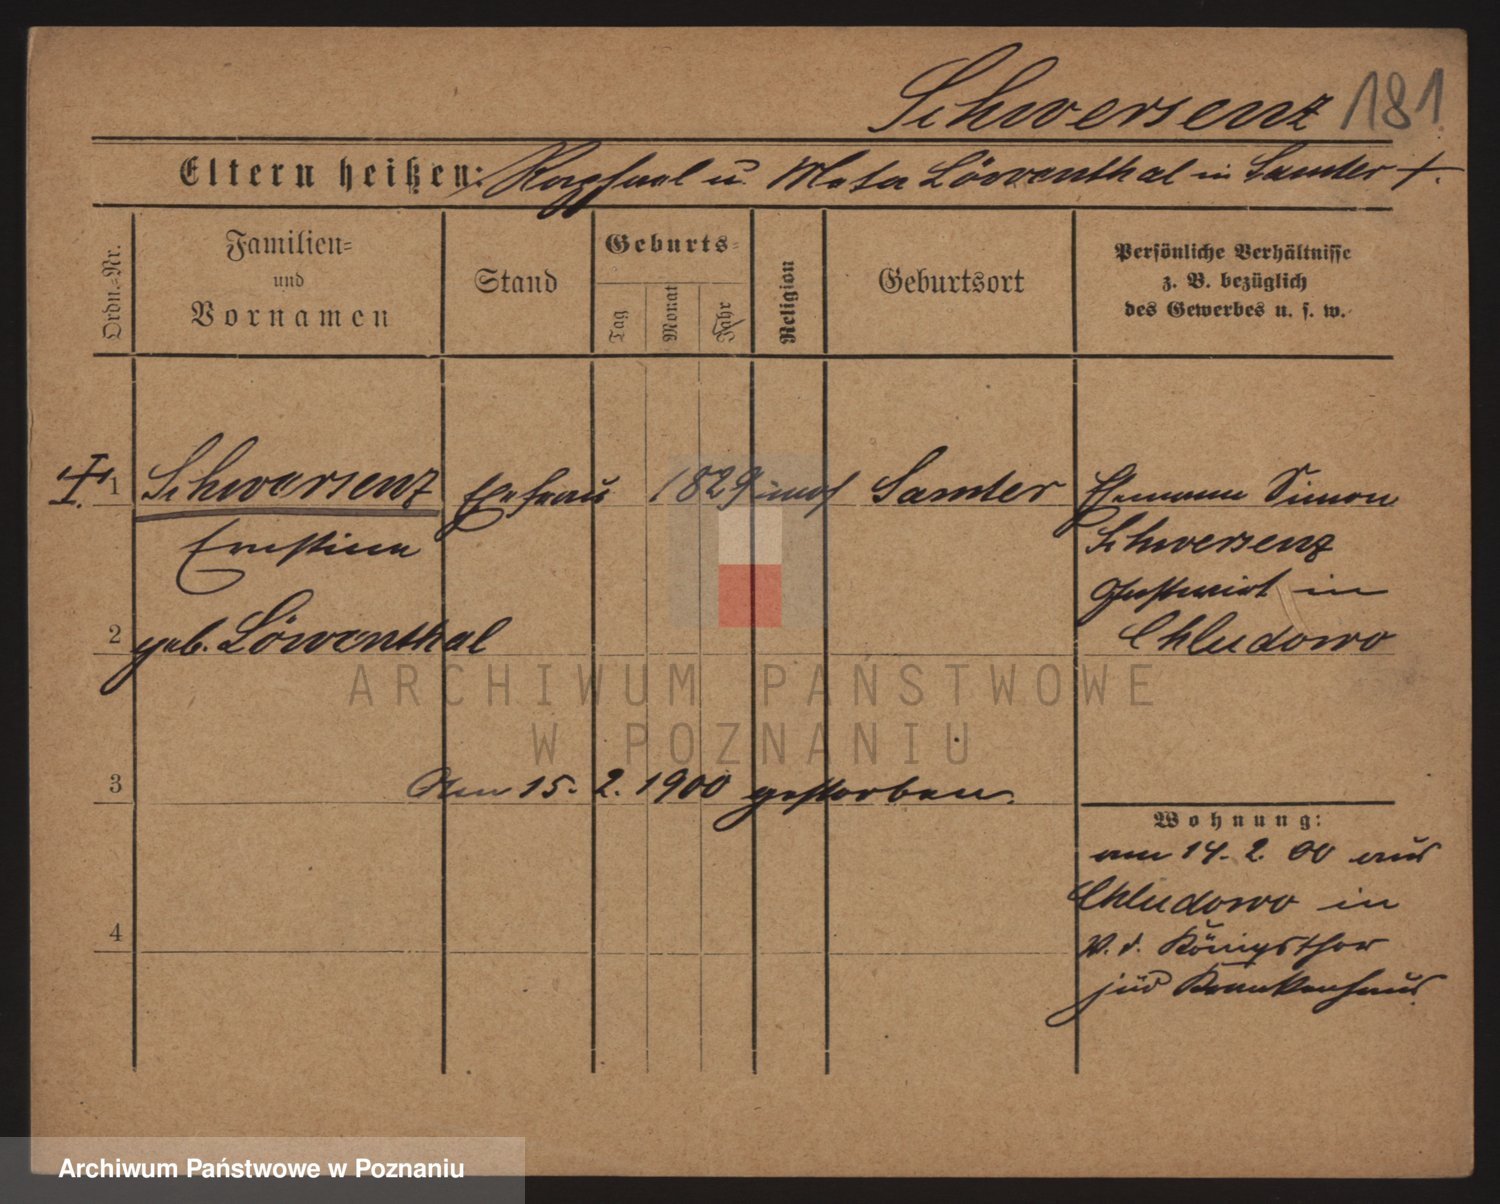 Schwersenz 181
Eltern heißen: Raphael u. Löwenthal in Samter +.
Ordn.-Nr.
Familien-
und
Vornamen
Stand
Geburts-
Tag
Monat
Jahr
Religion
Geburtsort
Persönliche Verhältnisse
z. B. bezüglich
des Gewerbes u. s. w.
1 Schwersenz Ehefrau 1829 mos Samter Ehemann Simon
Ernstine Schwersenz
Gastwirt in
2 geb. Löwenthal Chludowo
ARCHIWUM PAŃSTWOWE
W POZNANIU
3 Am 15. 2. 1900 gestorben.
Wohnung:
am 14. 2. 00 aus
Chludowo in
4 V. d. Königsthor
jüd Krankenhaus
Archiwum Państwowe w Poznaniu